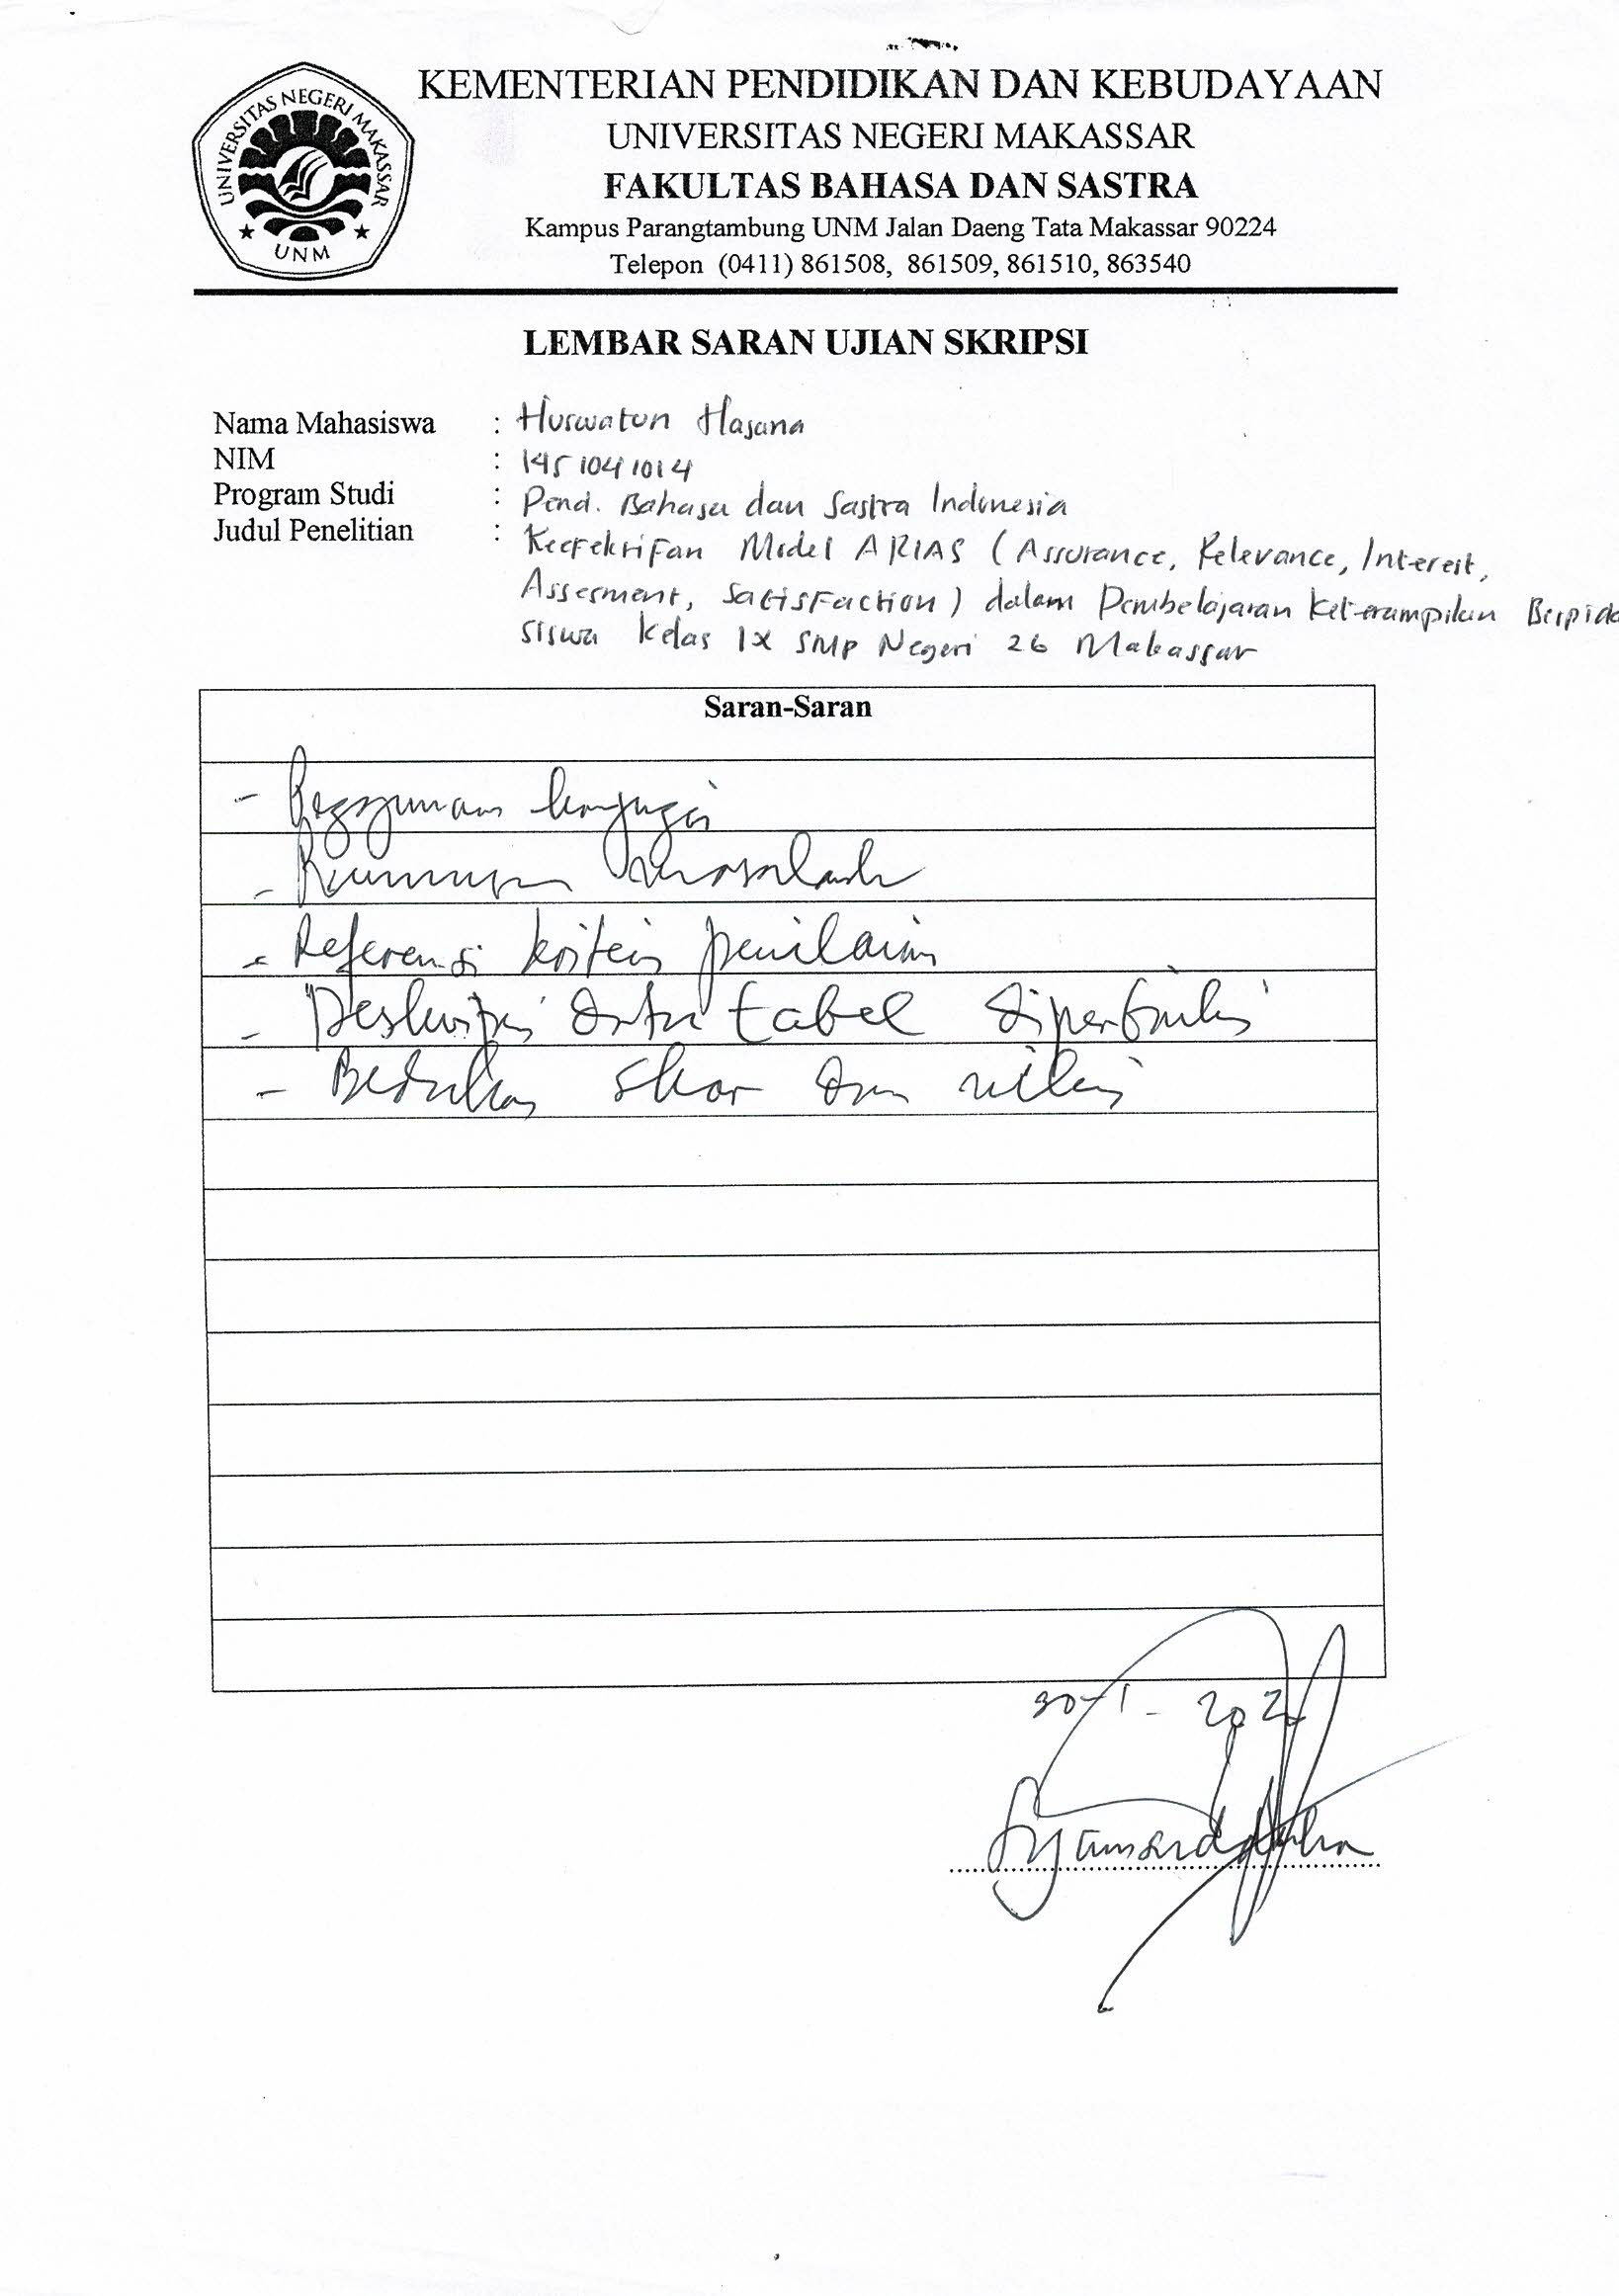 UNIVERSITAS NEGERI MAKASSAR
UNM
KEMENTERIAN PENDIDIKAN DAN KEBUDAYAAN
UNIVERSITAS NEGERI MAKASSAR
FAKULTAS BAHASA DAN SASTRA
Kampus Parangtambung UNM Jalan Daeng Tata Makassar 90224
Telepon (0411) 861508, 861509, 861510, 863540
LEMBAR SARAN UJIAN SKRIPSI
Nama Mahasiswa : Huswatun Hasana
NIM : 1451041014
Program Studi : Pend. Bahasa dan Sastra Indonesia
Judul Penelitian : Keefektifan Model ARIAS (Assurance, Relevance, Interest,
Assesment, Satisfaction) dalam Pembelajaran Keterampilan Berpida
siswa Kelas IX SMP Negeri 26 Makassar
Saran-Saran
- Penggunaan konjungsi
- Rumusan masalah
- Referensi kriteria penilaian
- Deskripsi data tabel diperbaiki
- Bedakan skor dan nilai
30-1-202